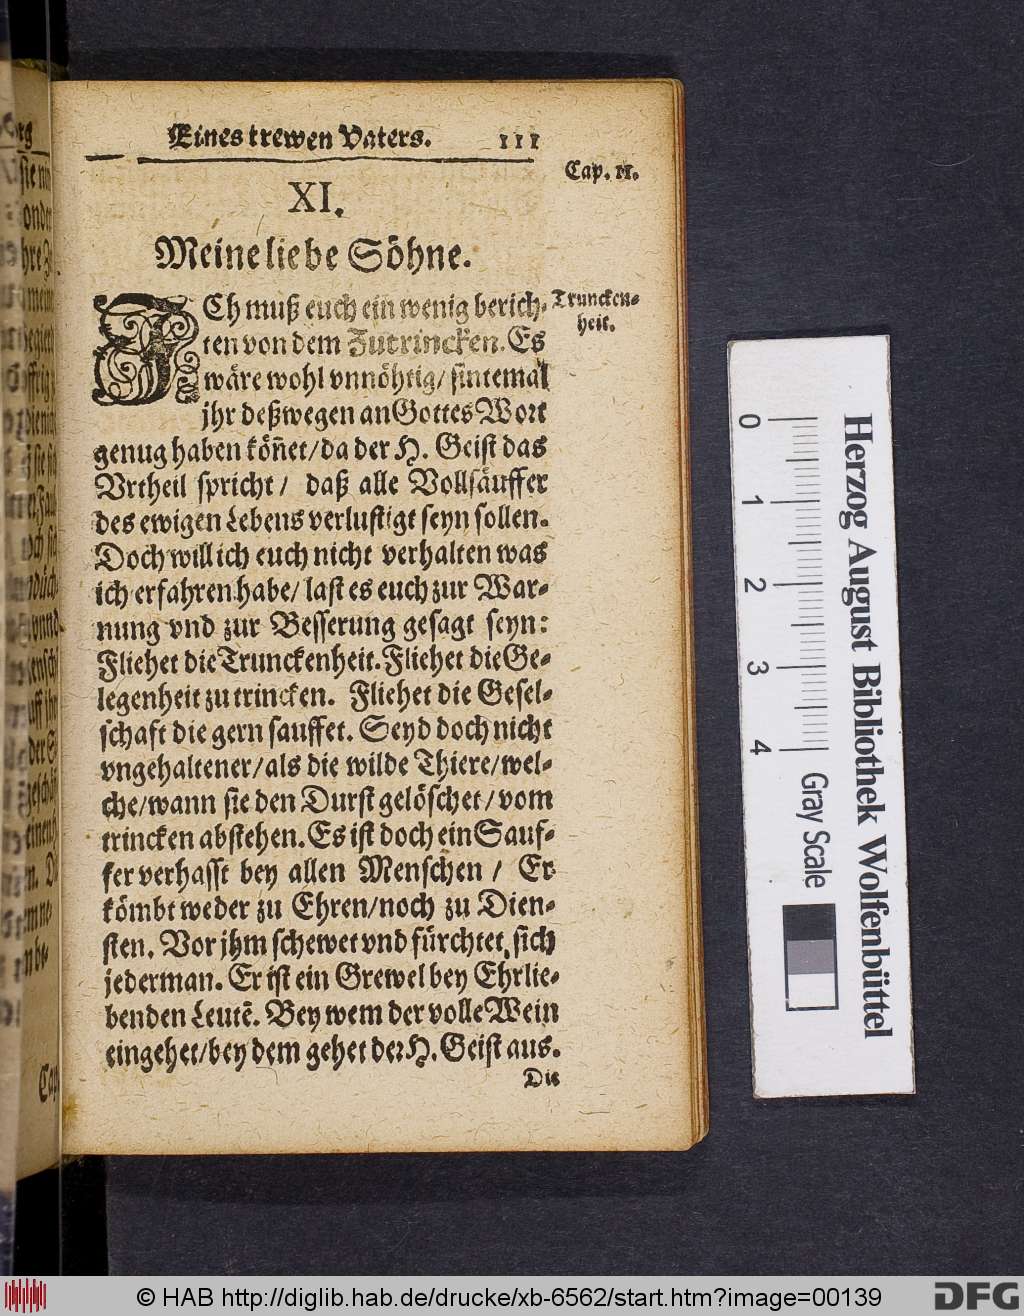 Eines trewen Vaters. 111
Cap. 11.
XI.
Meine liebe Söhne.
Truncken-
heit.
ICh muß euch ein wenig berich-
ten von dem Zutrincken. Es
wäre wohl vnnöhtig/ sintemal
jhr deßwegen an Gottes Wort
genug haben köñet/ da der H. Geist das
Vrtheil spricht/ daß alle Vollsäuffer
des ewigen Lebens verlustigt seyn sollen.
Doch will ich euch nicht verhalten was
ich erfahren habe/ last es euch zur War-
nung vnd zur Besserung gesagt seyn:
Fliehet die Trunckenheit. Fliehet die Ge-
legenheit zu trincken. Fliehet die Gesel-
schaft die gern sauffet. Seyd doch nicht
vngehaltener/ als die wilde Thiere/ wel-
che/ wann sie den Durst gelöschet/ vom
trincken abstehen. Es ist doch ein Sauf-
fer verhasst bey allen Menschen/ Er
kömbt weder zu Ehren/ noch zu Dien-
sten. Vor jhm schewet vnd fürchtet sich
jederman. Er ist ein Grewel bey Ehrlie-
benden Leutē. Bey wem der volle Wein
eingehet/ bey dem gehet der H. Geist aus.
Die
Herzog August Bibliothek Wolfenbüttel
0 1 2 3 4
Gray Scale
© HAB http://diglib.hab.de/drucke/xb-6562/start.htm?image=00139
DFG